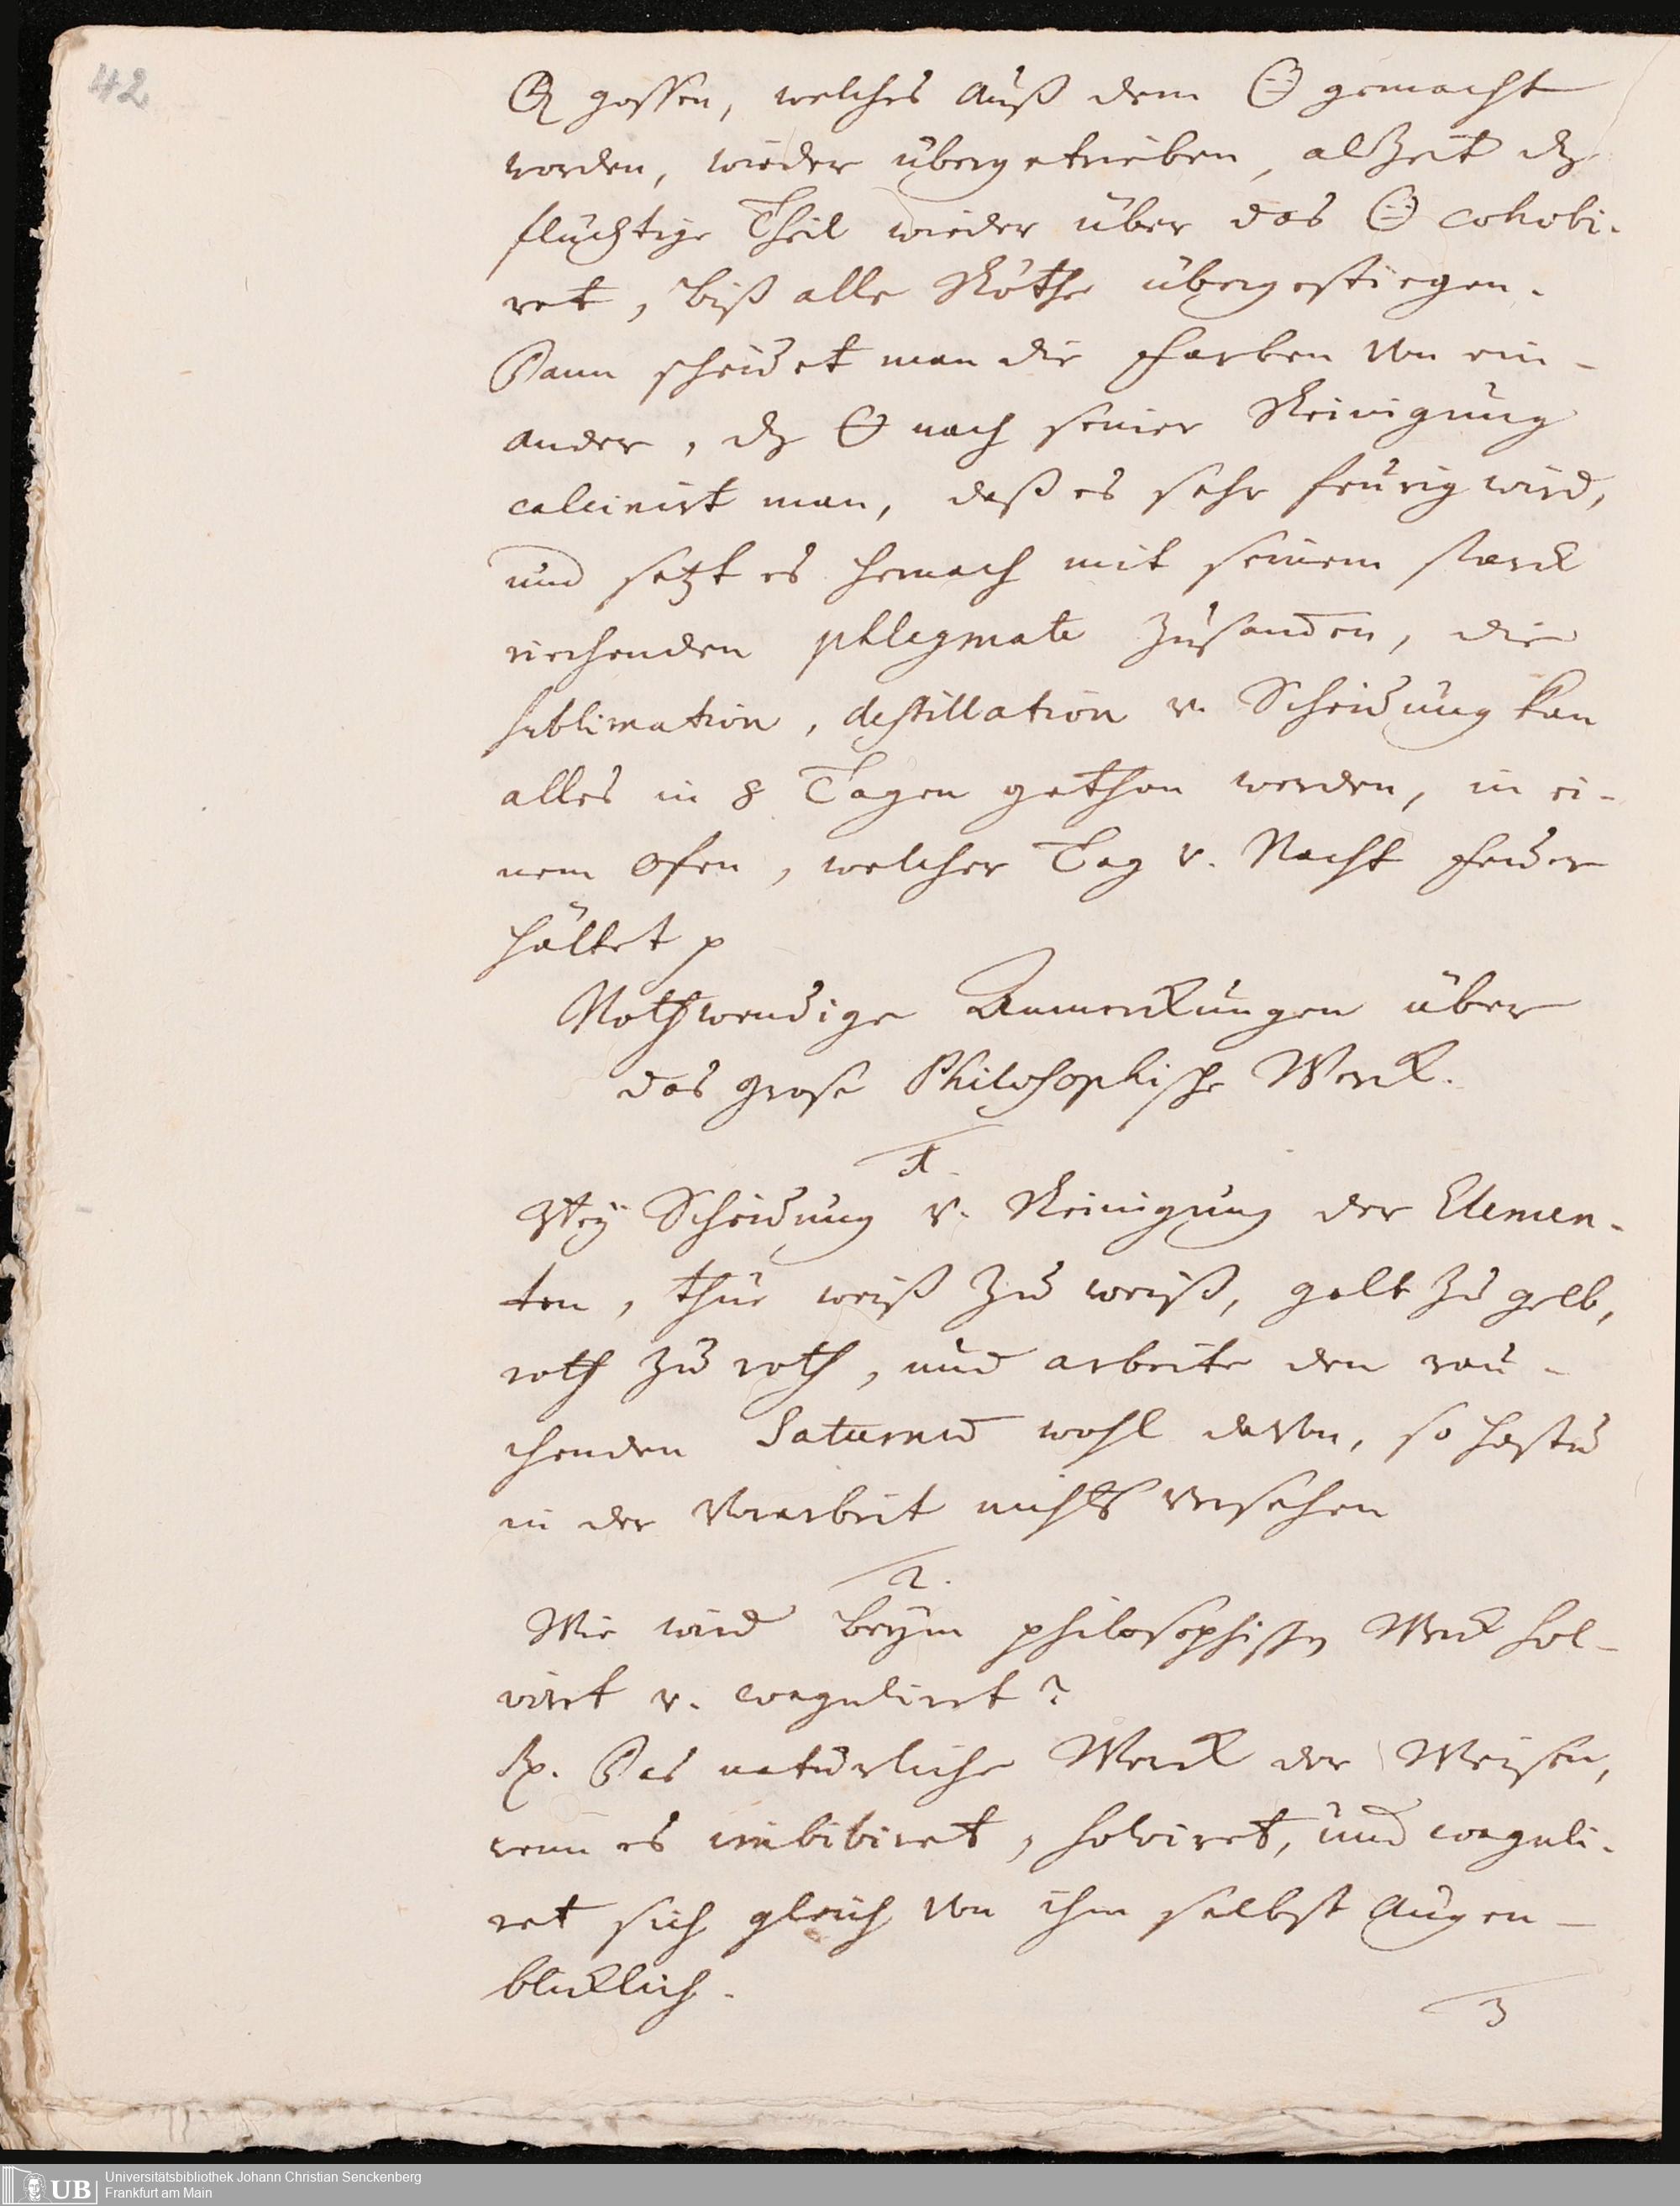 42
gossen, welches Auß dem 🜔 gemacht
worden, wieder übergetrieben, alßzeit dz
flüchtige Theil wieder über das 🜔 cohobi-
ret, biß alle Röthe übergestiegen.
Dann scheidet man die Farben von ein-
ander, dz 🜔 nach seiner Reinigung
calcinirt man, daß es sehr feurig wird,
und setzt es hernach mit seinem starck
riechenden phlegmate zusamen, die
sublimation, destillation v. Scheidung kan
alles in 8 Tagen gethan werden, in ei-
nem Ofen, welcher Tag v. Nacht Feuer
hältet p
Nothwendige Anmerckungen über
das grose Philosophische Werck.
1.
Bey Scheidung v. Reinigung der Elemen-
ten, thue weiß zu weiß, gelb zu gelb,
roth zu roth, und arbeite den rau-
chenden Saturnum wohl davon, so hastu
in der Vorarbeit nichts versehen
2.
Wie wird beym philosophischen Werck sol-
virt v. coagulirt?
Rp. Das natürliche Werck der Weisen,
wenn es imbibiret, solviret, und coaguli-
ret sich gleich von ihm selbst Augen-
blicklich.
3
UB Universitätsbibliothek Johann Christian Senckenberg
Frankfurt am Main